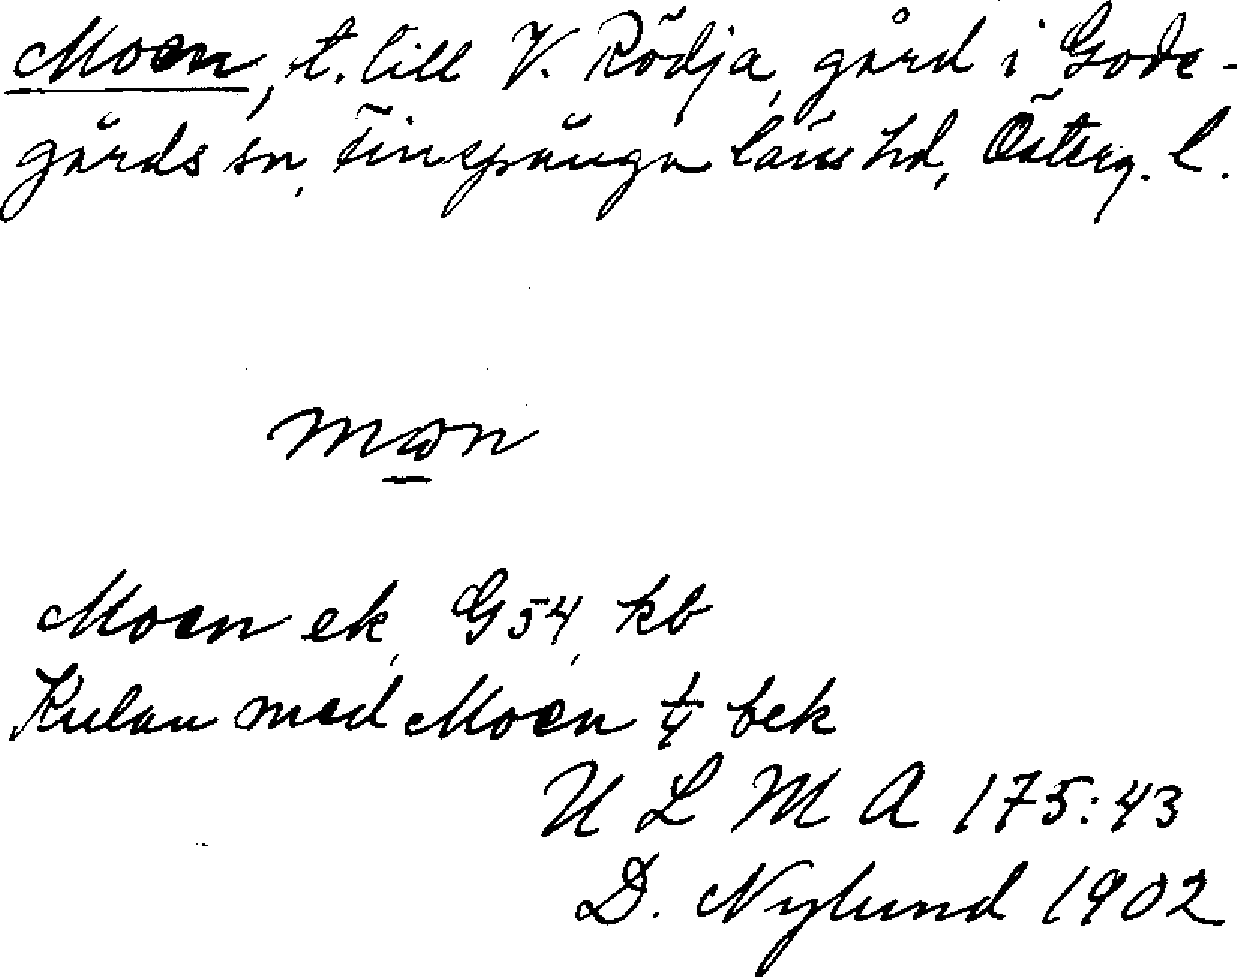 Moen, t. till V. Rödja, gård i Gode-
gårds sn, Finspånga läns hd, Österg. l.
mɷn
Moen ek, G54, kb
Kulan med Moen ¼ bek
U L M A 175:43
D. Nylund 1902